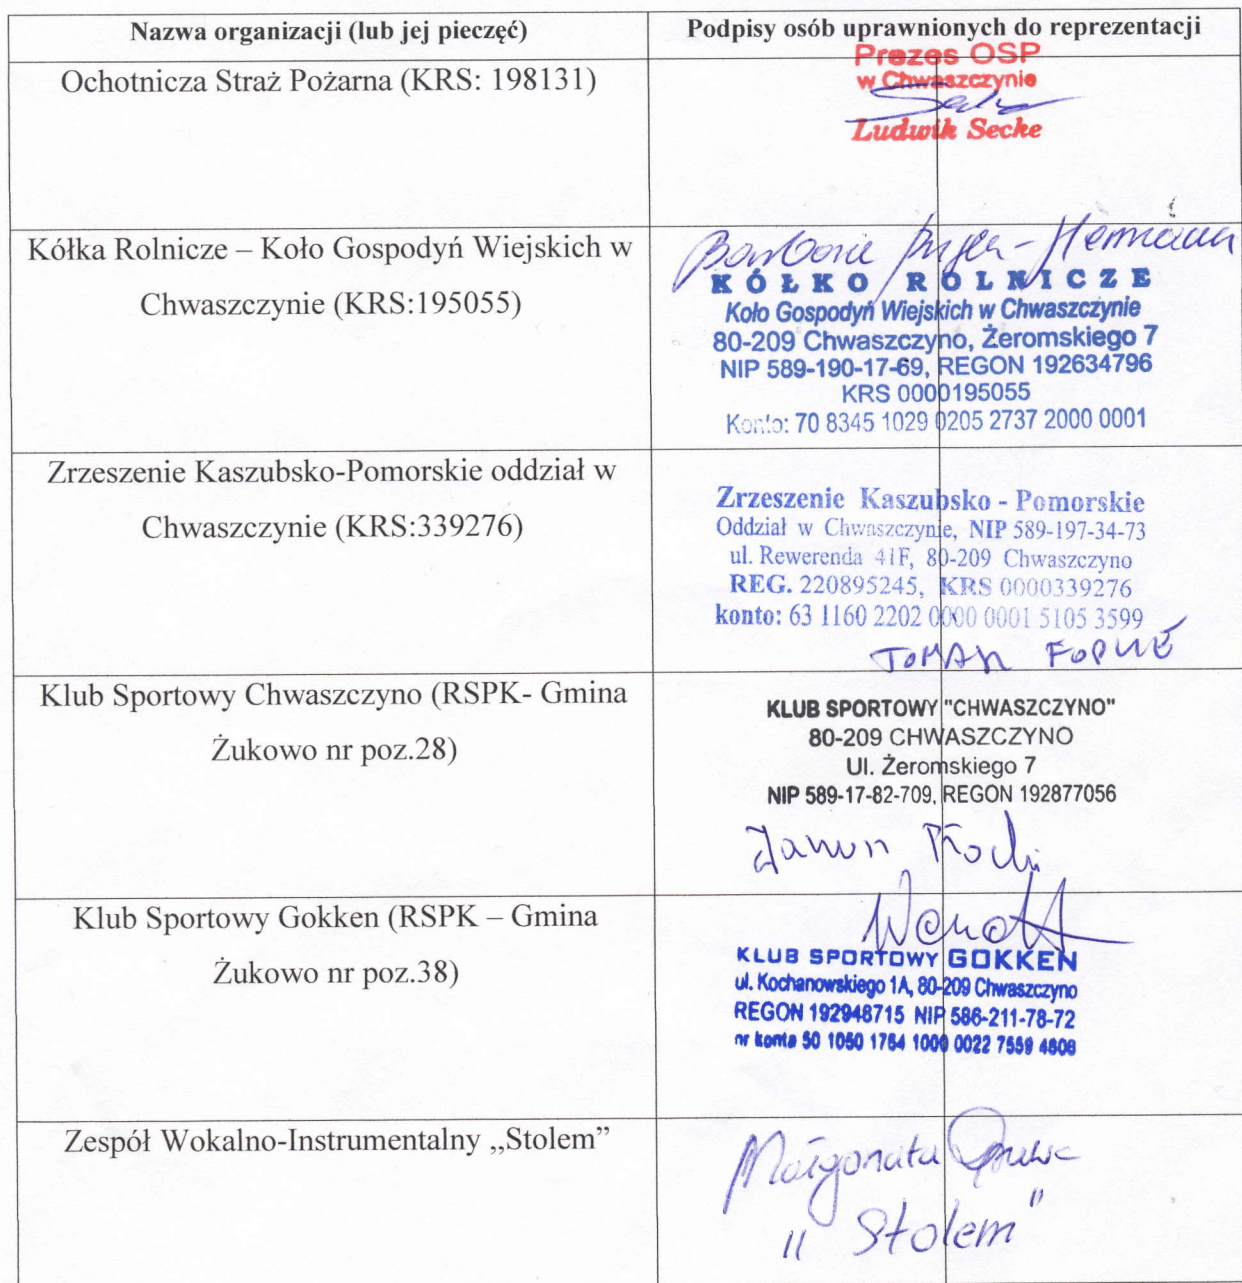 Nazwa organizacji (lub jej pieczęć)
Podpisy osób uprawnionych do reprezentacji
Ochotnicza Straż Pożarna (KRS: 198131)
Prezes OSP
w Chwaszczynie
Ludwik Secke
Kółka Rolnicze – Koło Gospodyń Wiejskich w
Chwaszczynie (KRS:195055)
KÓŁKO ROLNICZE
Koło Gospodyń Wiejskich w Chwaszczynie
80-209 Chwaszczyno, Żeromskiego 7
NIP 589-190-17-69, REGON 192634796
KRS 0000195055
Konto: 70 8345 1029 0205 2737 2000 0001
Zrzeszenie Kaszubsko-Pomorskie oddział w
Chwaszczynie (KRS:339276)
Zrzeszenie Kaszubsko - Pomorskie
Oddział w Chwaszczynie, NIP 589-197-34-73
ul. Rewerenda 41F, 80-209 Chwaszczyno
REG. 220895245, KRS 0000339276
konto: 63 1160 2202 0000 0001 5105 3599
Klub Sportowy Chwaszczyno (RSPK- Gmina
Żukowo nr poz.28)
KLUB SPORTOWY "CHWASZCZYNO"
80-209 CHWASZCZYNO
Ul. Żeromskiego 7
NIP 589-17-82-709, REGON 192877056
Klub Sportowy Gokken (RSPK – Gmina
Żukowo nr poz.38)
KLUB SPORTOWY GOKKEN
ul. Kochanowskiego 1A, 80-209 Chwaszczyno
REGON 192948715 NIP 586-211-78-72
nr konta 50 1050 1764 1000 0022 7559 4808
Zespół Wokalno-Instrumentalny „Stolem”
Małgorzata
„Stolem"